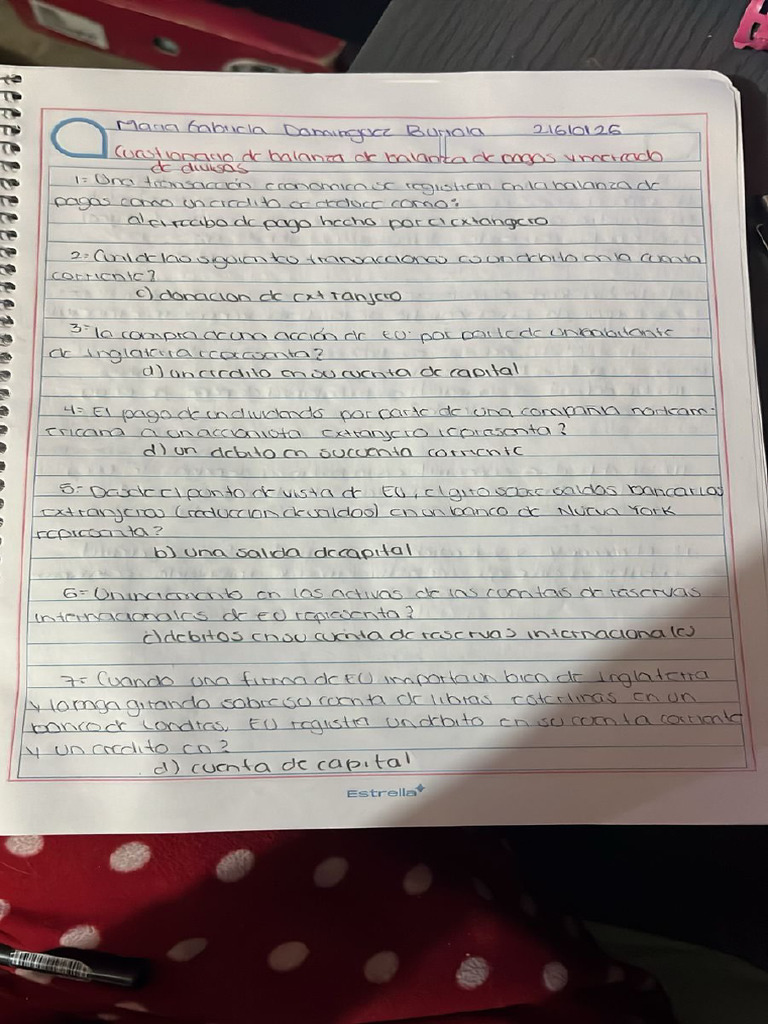 Maria Gabriela Dominguez Burrola 216/0126
Cuestionario de balanza de balanza de pagos y mercado
de divisas
1= Una transacción economica se registra en la balanza de
pagos como un credito se traduce como:
a) el recibo de pago hecho por el extangero
2= Cual de las siguientes transacciones es un debito en la cuenta
corriente?
c) donacion de extranjero
3= la compra de una acción de EU por parte de un habitante
de inglaterra representa?
d) un credito en su cuenta de capital
4= El pago de un dividendo por parte de una compañia norteam-
ericana a un accionista extranjero representa?
d) un debito en su cuenta corriente
5= Desde el punto de vista de EU, el giro sobre saldos bancarios
extranjeros (reduccion de saldos) en un banco de Nueva York
representa?
b) una salida de capital
6= Un incremento en las activas de las cuentas de reservas
internacionales de EU representa?
c) debitos en su cuenta de reservas internacionales
7= Cuando una firma de EU importa un bien de inglaterra
y lo paga girando sobre su cuenta de libras esterlinas en un
banco de Londres, EU registra un debito en su cuenta corriente
y un credito en?
d) cuenta de capital
Estrella